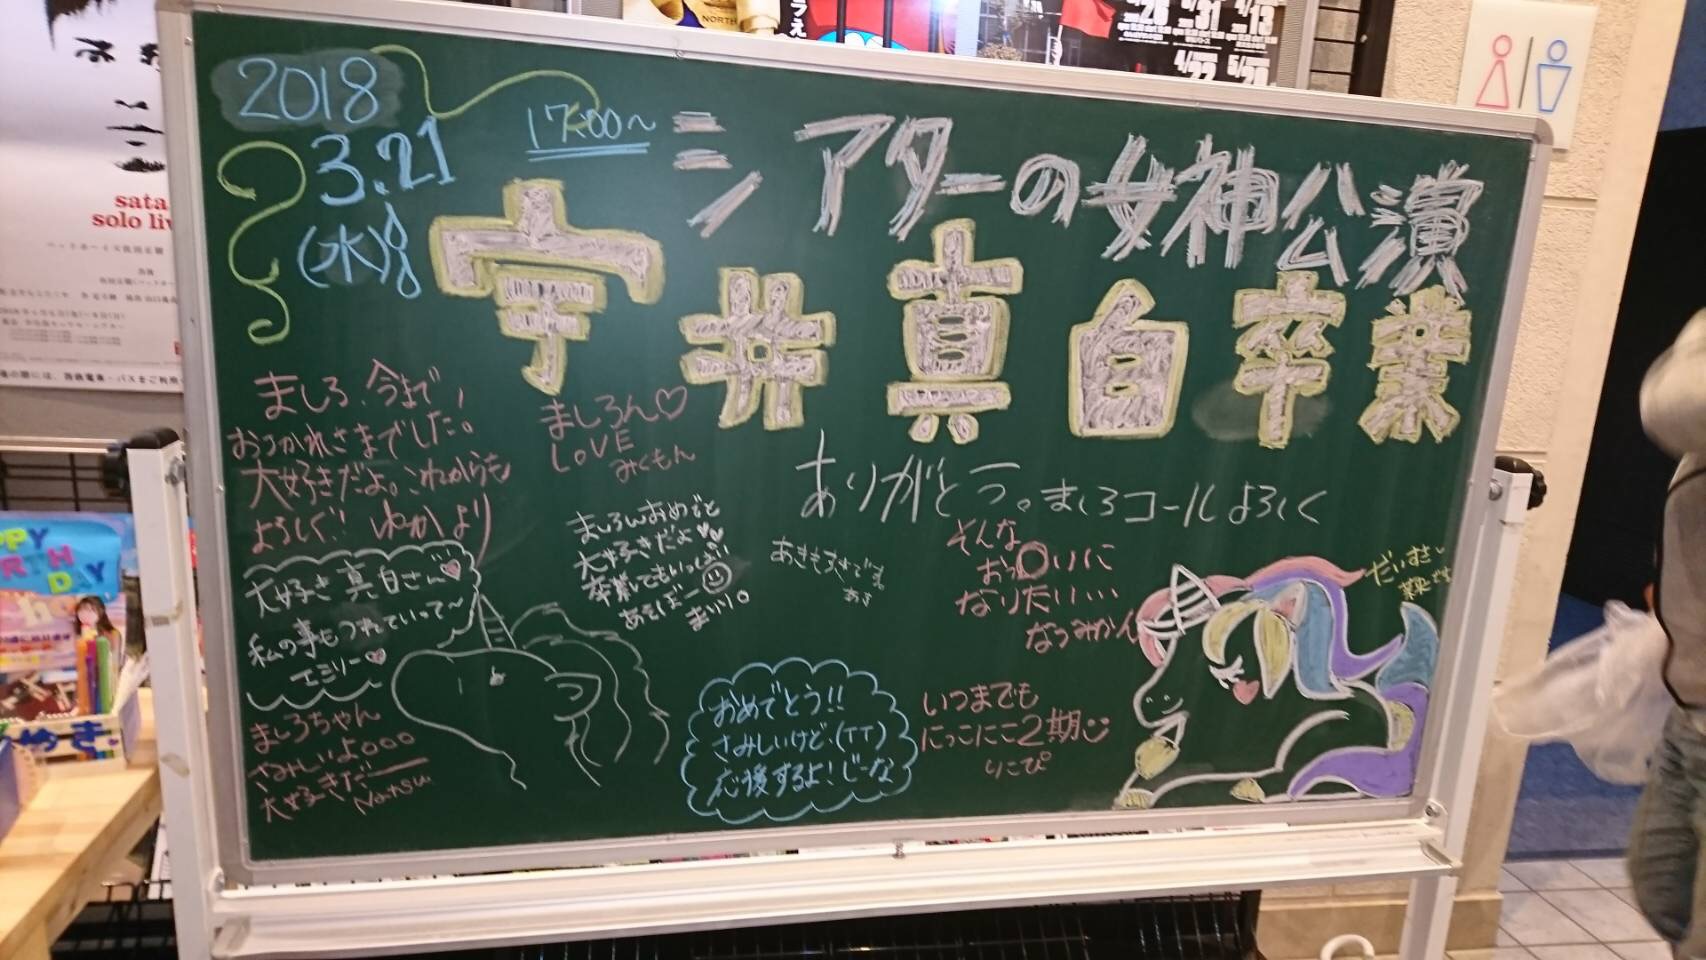 2018
3.21
(水)
17:00〜
シアターの女神公演
宇井真白卒業
ましろ、今まで、
おつかれさまでした。
大好きだよ。これからも
よろしく!! ゆかより
ましろん♡
LOVE
みくもん
ありがとう。ましろコールよろしく
大好き真白さん♡
私の事もつれていって〜
エミリー♡
ましろんおめでと
大好きだよ♡♡
卒業してもいっぱい
あそぼー☺
まいり。
あきもすきです。
あき
そんな
おっ〇りに
なりたい…
なつみかん
だいすき
ましろちゃん
さみしいよ○○○
大好きだー
Natsu
おめでとう!!
さみしいけど、(TT)
応援するよ!じーな
いつまでも
にっこにこ2期☺
りこぴ
NORTH
sata
solo liv
PPY
RTH
DAY